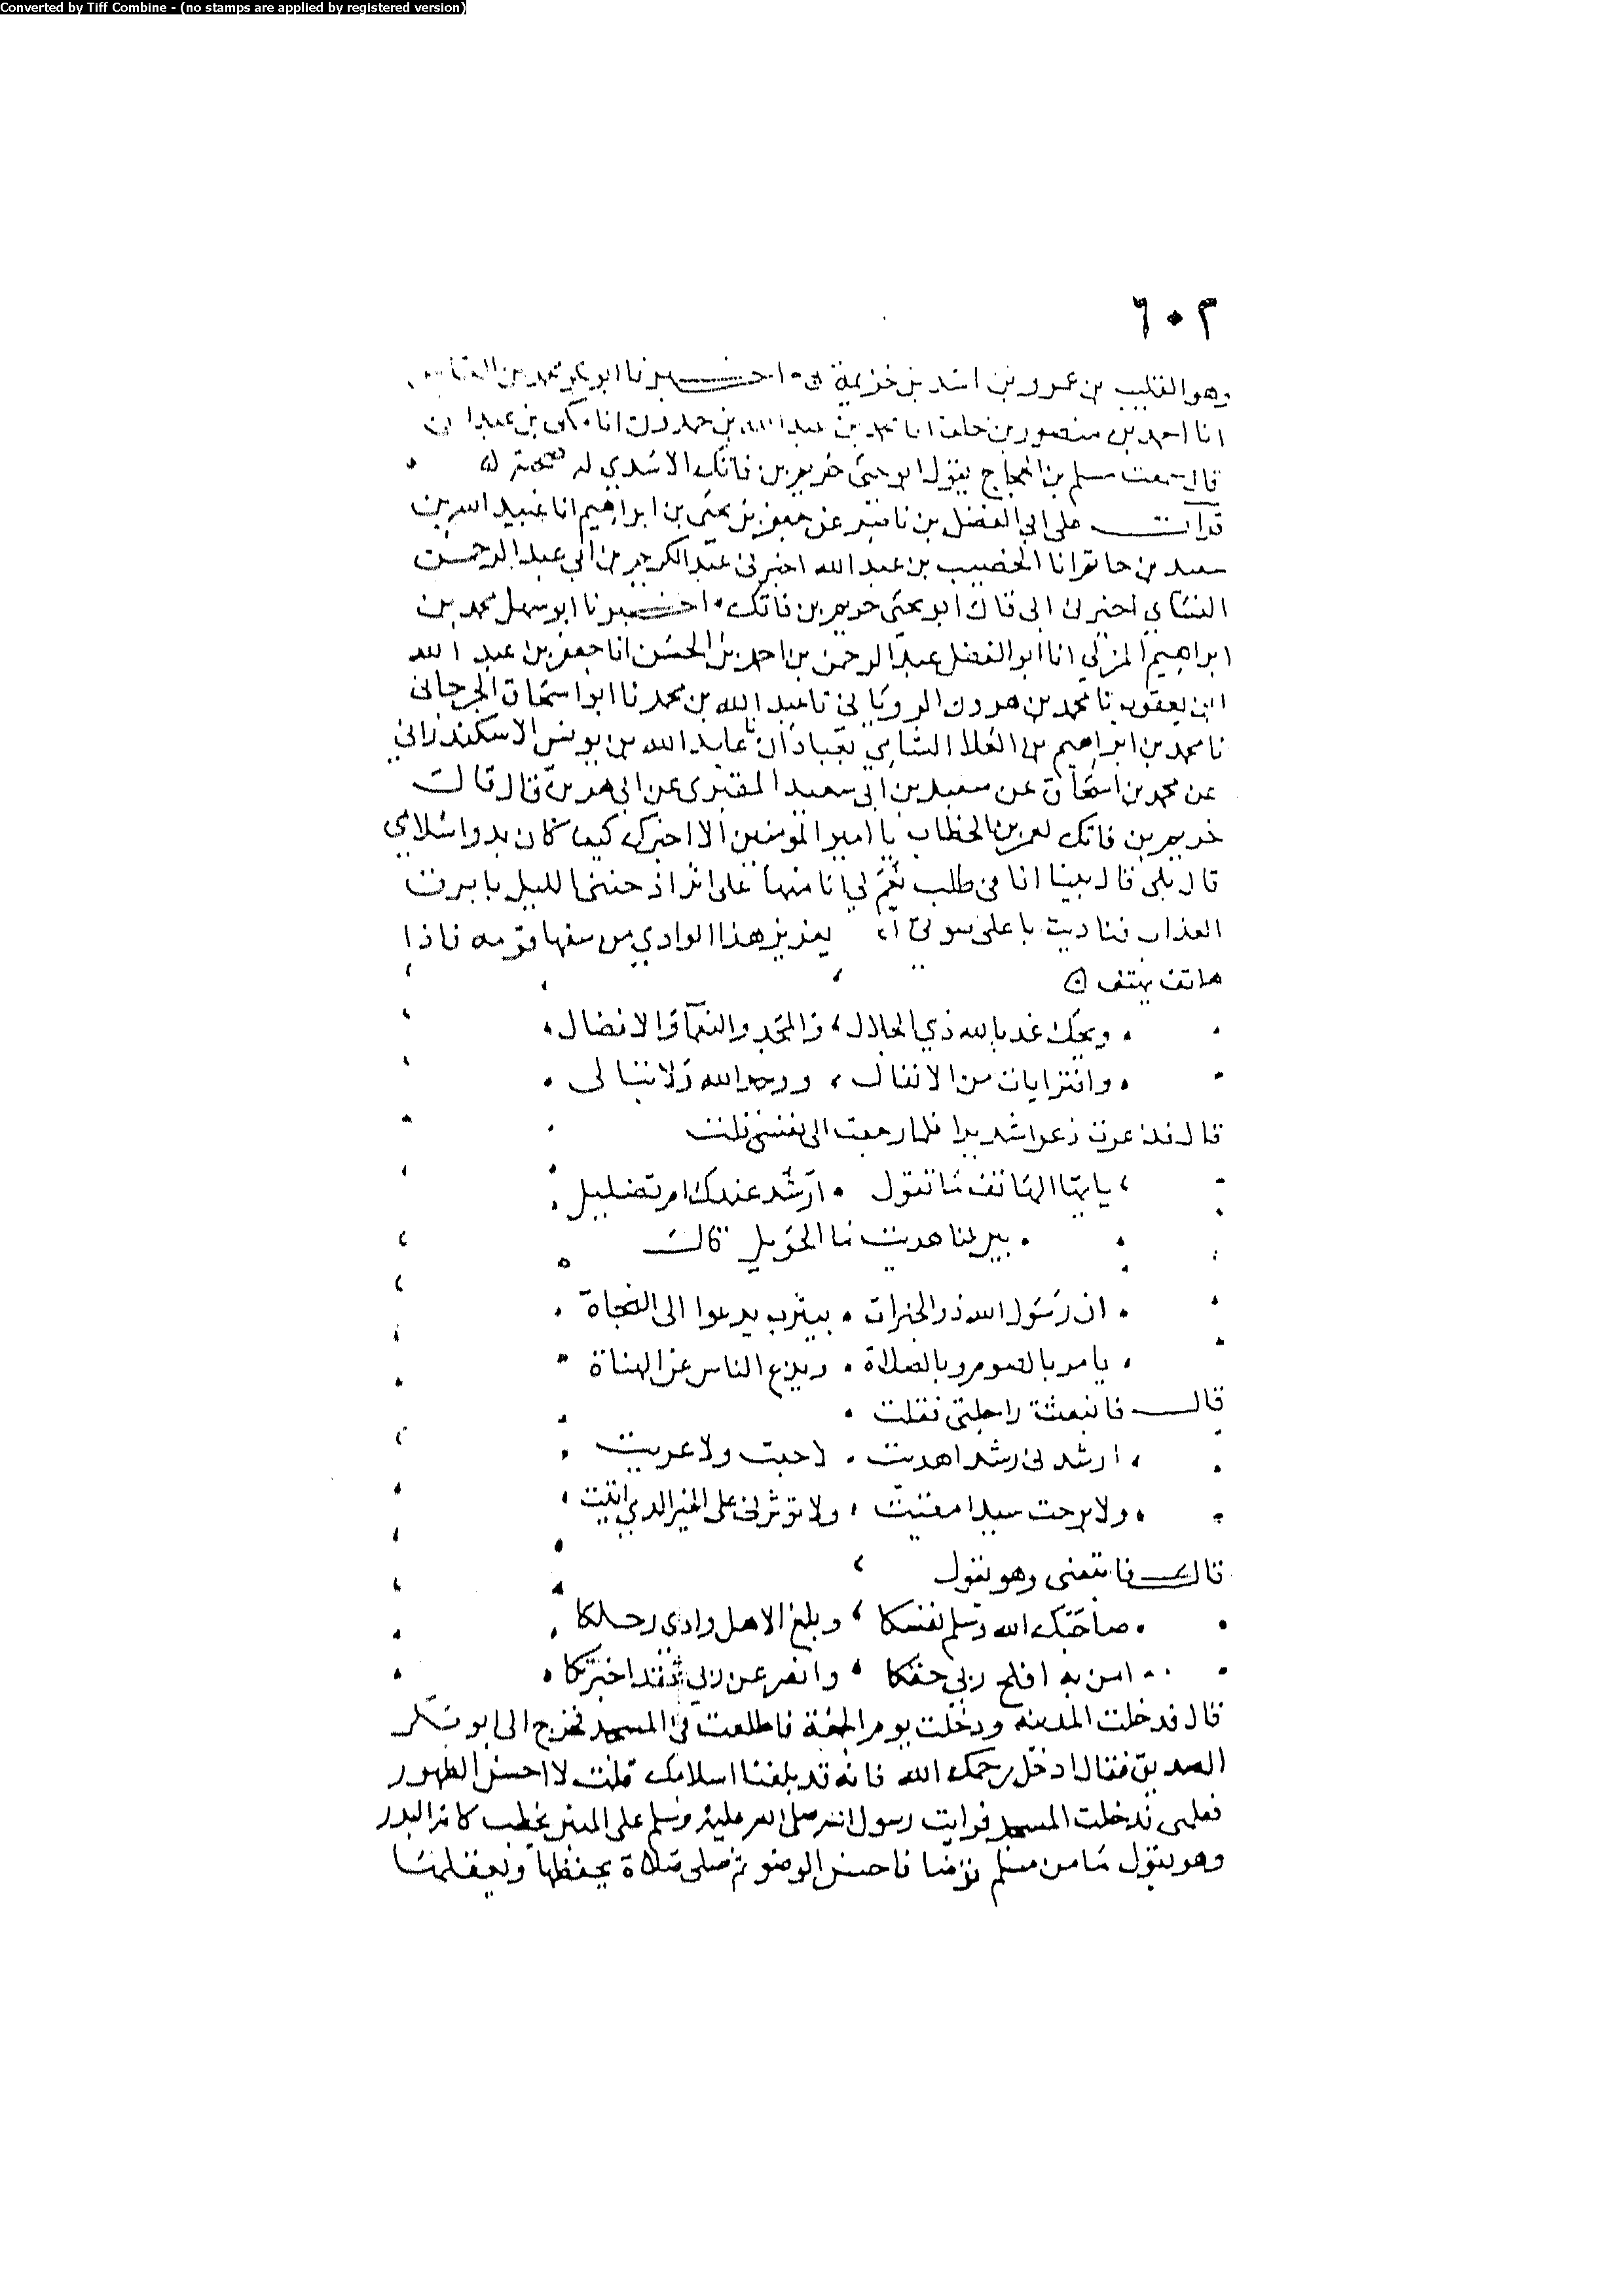 Converted by Tiff Combine - (no stamps are applied by registered version)
٦٠٢
وهو القليب بن عمرو بن اسد بن خزيمة اخبرنا ابو بكر محمد بن
انا احمد بن منصور بن خلف انا محمد بن عبد الله بن حمدون انا مكي بن عبدان
قال سمعت مسلم بن الحجاج يقول ابو يحيى خريم بن فاتك الاسدي له صحبة
قرات على ابي الفضل بن ناصر عن جعفر بن يحيى بن ابراهيم انا عبيد الله بن
سعيد بن حاتم انا الخصيب بن عبد الله اخبرني عبد الكريم بن ابي عبد الرحمن
النساي اخبرني ابي قال ابو يحيى خريم بن فاتك اخبرنا ابو سهل محمد بن
ابراهيم المزكي انا ابو الفضل عبد الرحمن بن احمد بن الحسن انا جعفر بن عبد الله
ابن يعقوب نا محمد بن هرون الروياني نا عبد الله بن محمد نا ابو اسحاق الجرجاني
نا محمد بن ابراهيم بن العلا الشامي بعبادان نا عبد الله بن يونس الاسكندراني
عن محمد بن اسحاق عن سعيد بن ابي سعيد المقبري عن ابي هريرة قال قال
خريم بن فاتك لعمر بن الخطاب يا امير المومنين الا اخبرك كيف كان بدو اسلامي
قال بلى قال بينا انا في طلب نعم لي انا منها على اثر اذ جنني الليل بابرق
العذاب فناديت باعلى صوتي بعزيز هذا الوادي من سفها قومه فاذا
هاتف يهتف
ويحك عذ بالله ذي الجلال والمجد والنعما والافضال
واقتر ايات من الانفال ووحد الله ولا تبالي
قال فذعرت ذعرا شديدا فلما رجعت الى نفسي قلت
يايها الهاتف ما تقول ارشد عندك ام تضليل
بين لنا هديت ما الحويل قال
ان رسول الله ذو الخيرات بيثرب يدعوا الى النجاة
يامر بالصوم وبالصلاة ويزع الناس عن الهناة
قال فانبعثت راحلتي فقلت
ارشدني رشدا هديت لا جعت ولا عريت
ولا برحت سيدا مقيت ولا توثرني على الخير الذي اتيت
قال فاتبعني وهو يقول
صاحبك الله وسلم نفسكا وبلغ الاهل وادى رحلكا
امن به افلح ربي حقكا وانصر عن ربي فقد اخبرتكا
قال فدخلت المدينه ودخلت يوم الجمعة فاطلعت في المسجد فخرج الى ابو بكر
الصديق فقال ادخل رحمك الله فانه قد بلغنا اسلامك قلت لا احسن الطهور
فعلمني فدخلت المسجد فرايت رسول الله صلى الله عليه وسلم على المنبر يخطب كانه البدر
وهو يقول ما من مسلم توضا فاحسن الوضو ثم صلى صلاة يحفظها ويعقلها